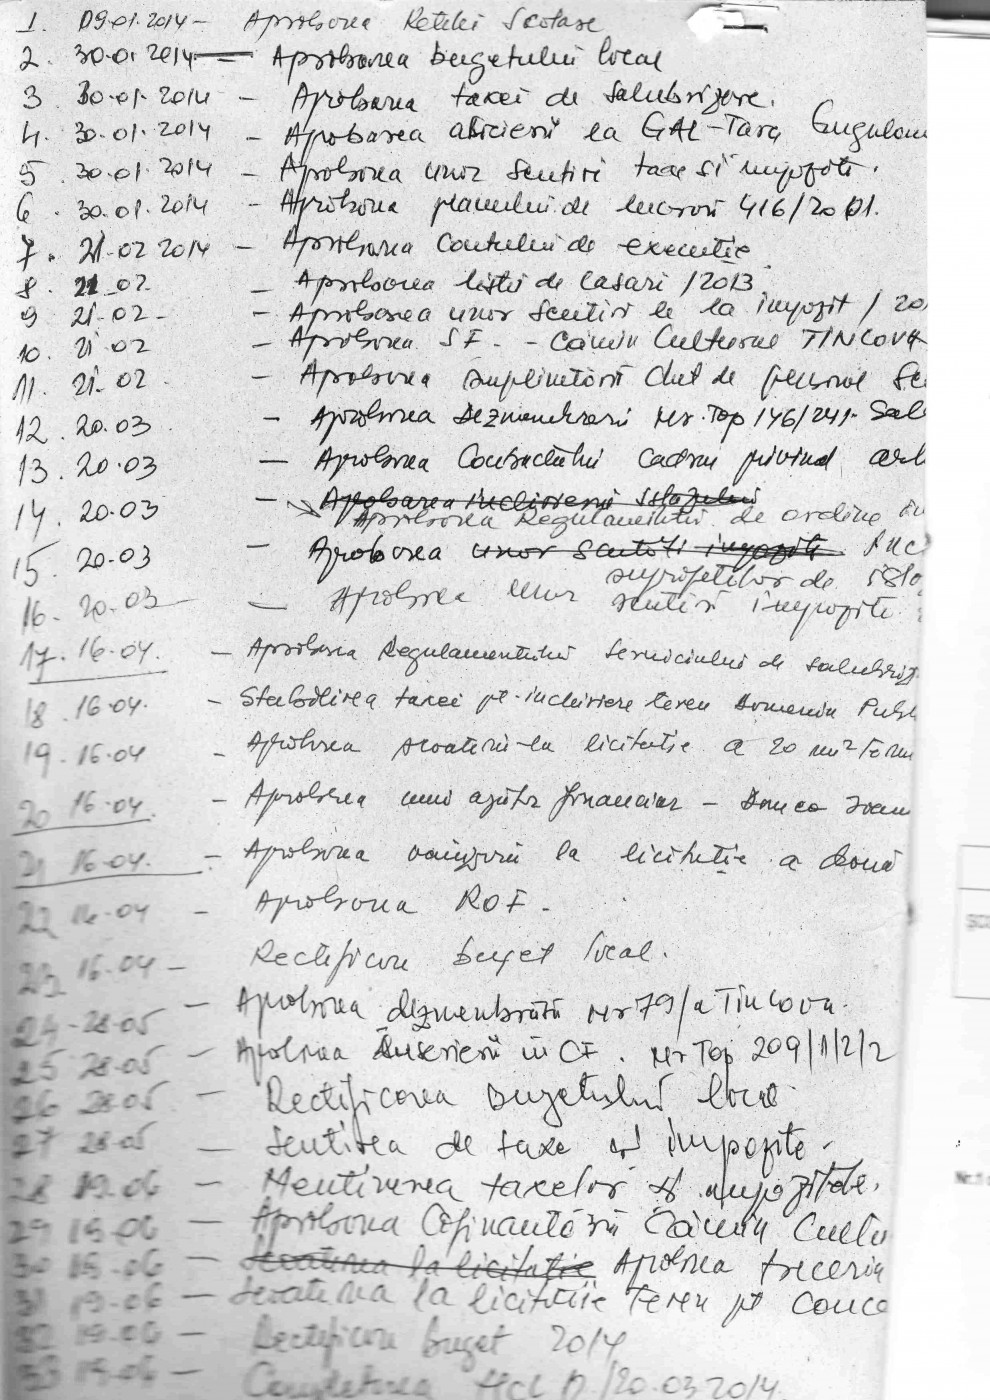 1. 09.01.2014 - Aprobarea Retelei Scolare
2. 30.01.2014 - Aprobarea bugetului local
3 30.01.2014 - Aprobarea taxei de Salubrizare.
4. 30.01.2014 - Aprobarea aderării la GAL-Tara
5. 30.01.2014 - Aprobarea unor Scutiri taxe si impozite.
6. 30.01.2014 - Aprobarea planului de lucrari 416/2001.
7. 21.02 2014 - Aprobarea Contului de executie
8. 21.02 - Aprobarea listei de Casari / 2013
9 21.02 - - Aprobarea unor Scutiri de la impozit /
10. 21.02 - Aprobarea S.F. - Cămin Cultural TINCOVA
11. 21.02 - Aprobarea de personal
12. 20.03 - Aprobarea Dezmembrarii Nr. Top 146/241-
13. 20.03 - Aprobarea Contractului Cadru privind
14. 20.03 - Aprobarea inchirierii Islazului
Aprobarea Regulamentului de ordine
15. 20.03 - Aprobarea unor Scutiri impozite
suprafetelor de
16. 20.03 - Aprobarea unor scutiri impozite
17. 16.04. - Aprobarea Regulamentului Serviciului de
18. 16.04. - Stabilirea taxei pt. inchiriere teren Domeniu
19. 16.04 - Aprobarea scoaterii la licitatie a 20 m² teren
20 16.04. - Aprobarea unui ajutor financiar -
21 16.04. - Aprobarea vanzarii la licitatie a două
22 16.04 - Aprobarea ROF.
23 16.04 - Rectificare buget local.
24 - 28.05 - Aprobarea dezmembrării Nr 79/a Tincova.
25 28.05 - Aprobarea Înscrierii in CF. Nr Top 209/1/2/2
26 28.05 - Rectificarea Bugetului local
27 28.05 - Scutirea de taxe si impozite.
28 19.06 - Mentinerea taxelor si impozitelor.
29 19.06 - Aprobarea Cofinantării Cămin
30 19.06 - Scoaterea la licitatie Aprobarea trecerii
31 19.06 - Scoaterea la licitatie teren pt
32 19.06 - Rectificare buget 2014
33 19.06 - Completarea HCL /20.03.2014